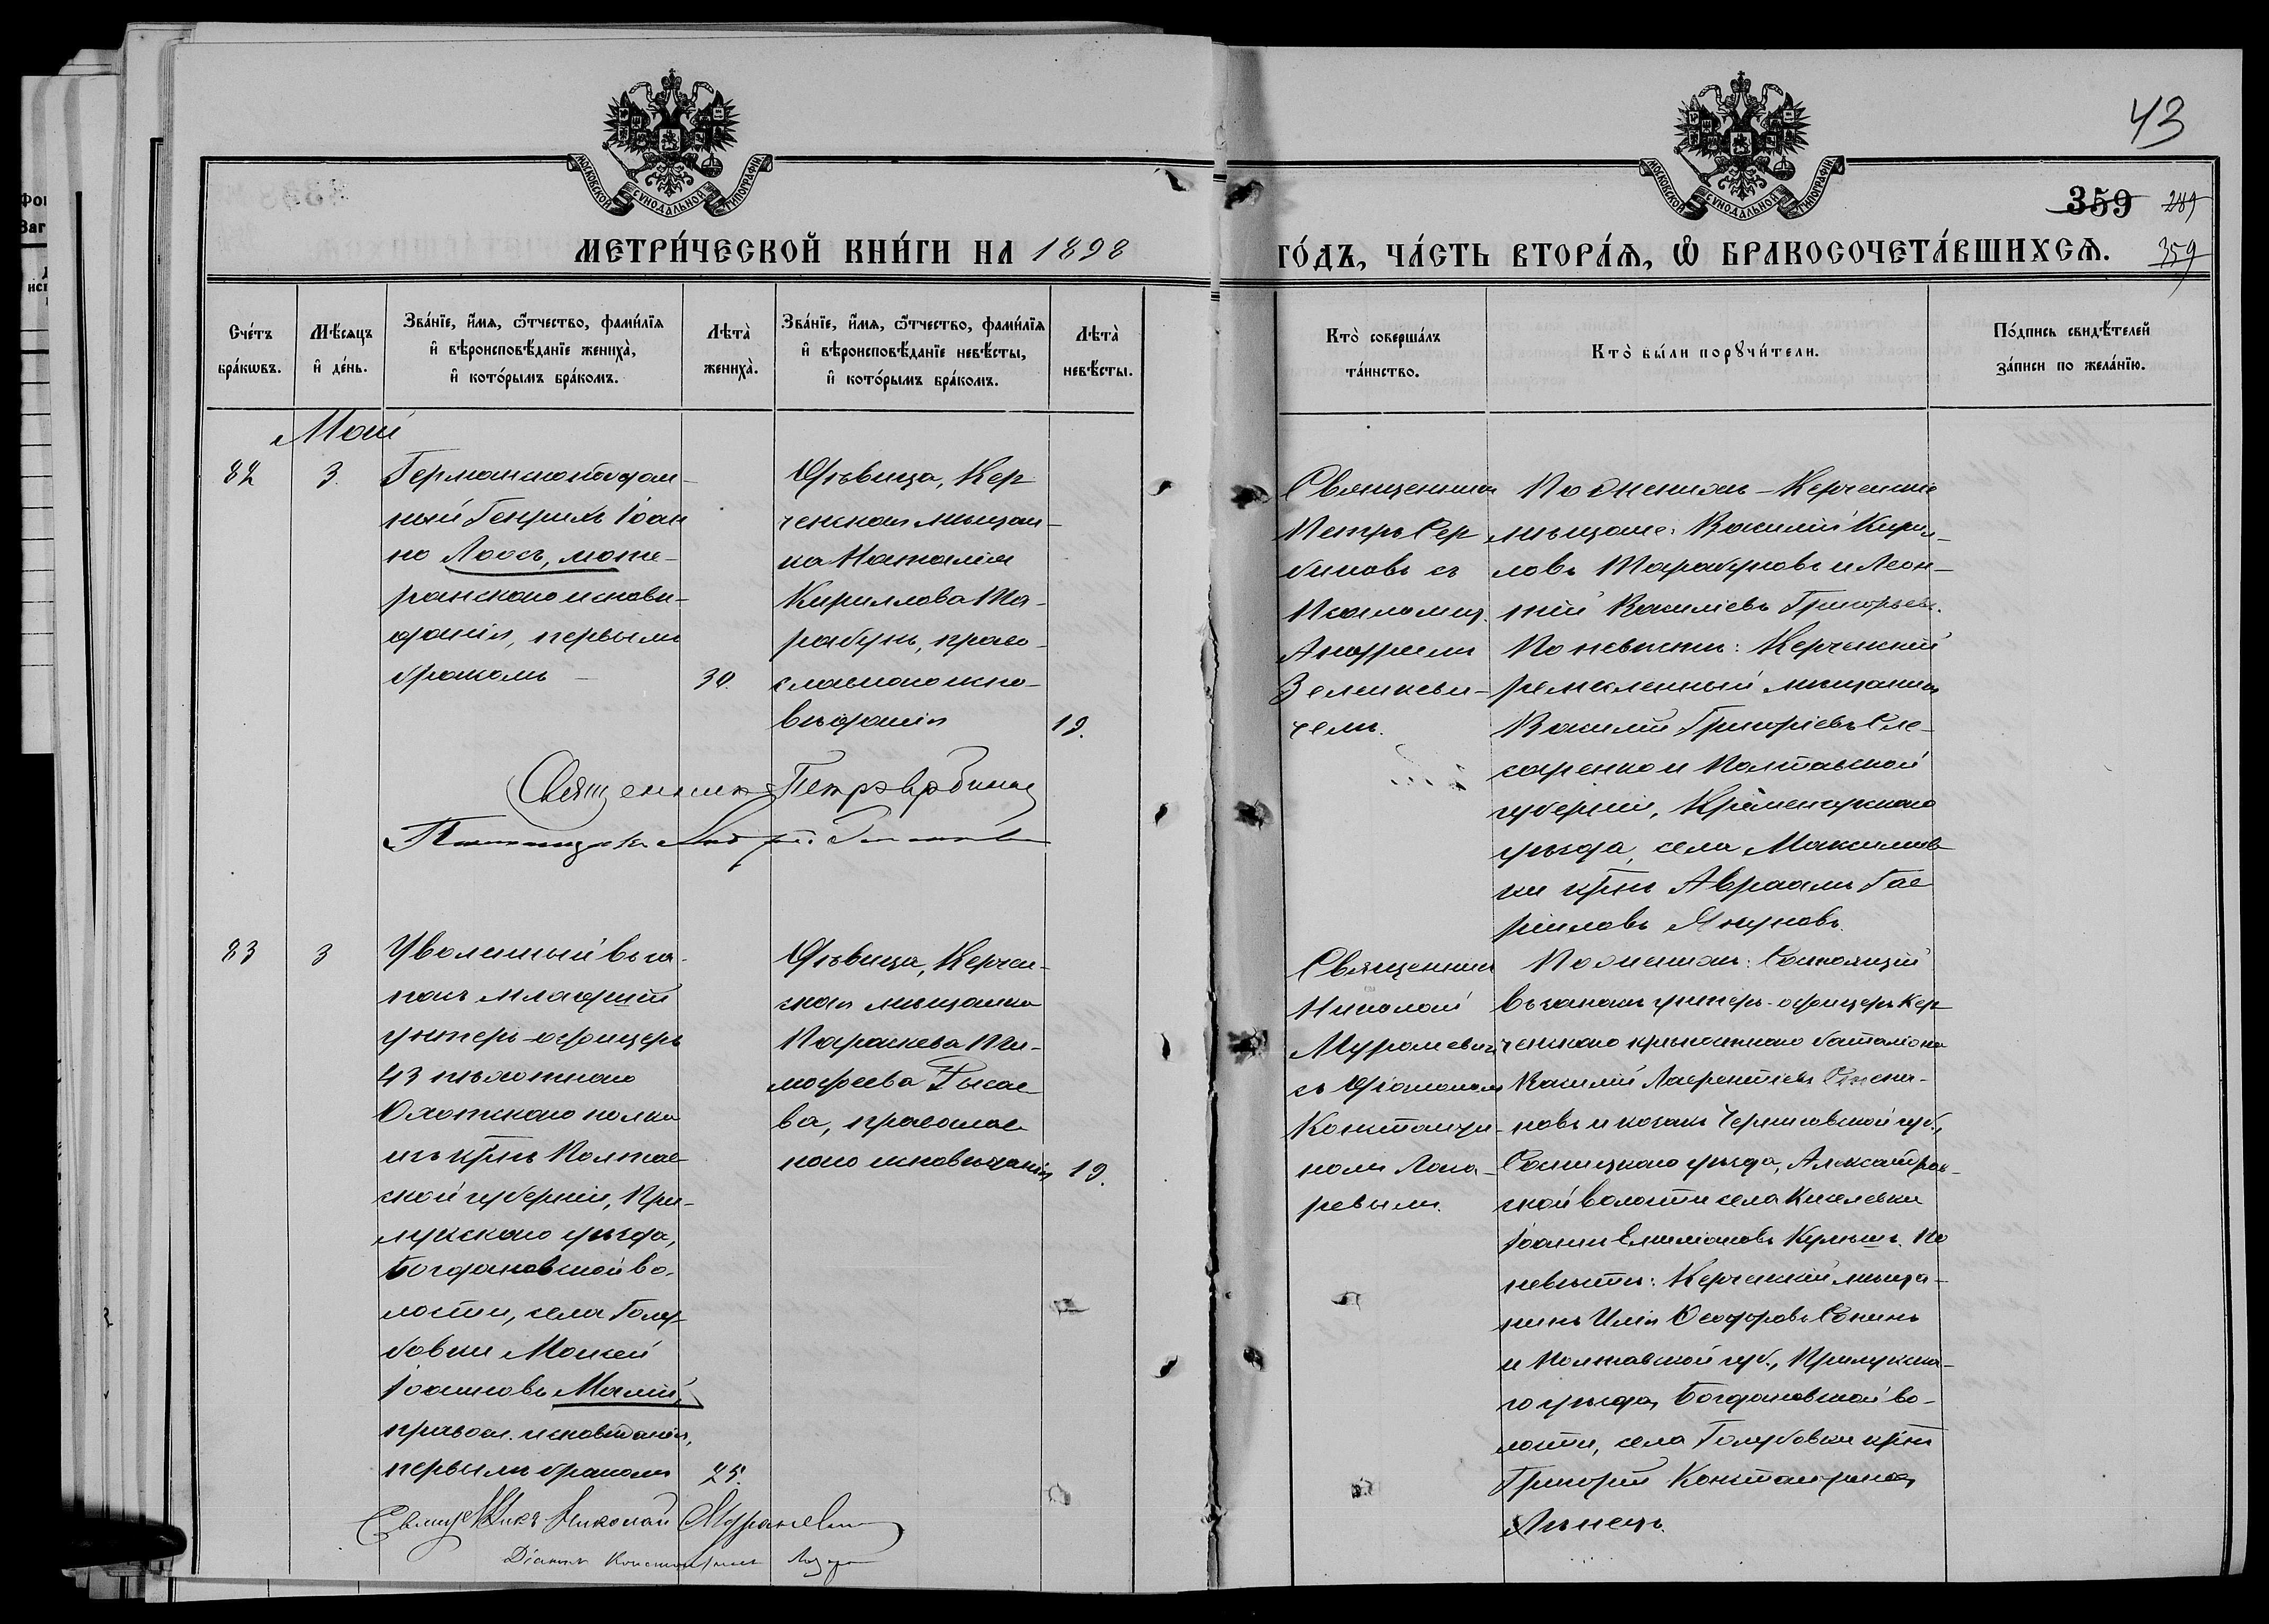 43
359 289
359
МОСКОВСКОЙ СѴНОДАЛЬНОЙ ТИПОГРАФІИ
МОСКОВСКОЙ СѴНОДАЛЬНОЙ ТИПОГРАФІИ
МЕТРИ́ЧЕСКОЙ КНИ́ГИ НА 1898 ГО́ДЪ, ЧА́СТЬ ВТОРА́Я, Ѡ БРАКОСОЧЕТА́ВШИХСѦ.
Сче́тъ бра́кѡвъ.
Мѣ́сяцъ и҆ де́нь.
Зва́нїе, и҆́мя, ѻ҆́тчество, фамил́їя
и҆ вѣроисповѣ́данїе жениха̀,
и҆ кото́рымъ бра́комъ.
Лѣта̀ жениха̀.
Зва́нїе, и҆́мя, ѻ҆́тчество, фамил́їя
и҆ вѣроисповѣ́данїе невѣ́сты,
и҆ кото́рымъ бра́комъ.
Лѣта̀ невѣ́сты.
Кто̀ соверша́лъ
та́инство.
Кто̀ бы́ли порꙋчи́тели.
По́дпись свидѣ́телей
за́писи по жела́нїю.
Май
82
3.
Германскоподдан-
ный Генрихъ Іоан
но Лоосъ, люте-
ранскаго исповѣ-
данія, первымъ
бракомъ
30.
Дѣвица, Кер
ченская мѣщан-
ка Наталія
Кириллова Та-
рабунъ, право-
славнаго испо-
вѣданія
19.
Священникъ
Петръ Сер
биновъ съ
Псаломщ.
Андреемъ
Зеленкеви-
чемъ.
По женихѣ - Керченскіе
мѣщане: Василій Кирил-
ловъ Тарабуновъ и Леон-
тій Василіевъ Григорьев.
По невѣстѣ: Керченскій
ремесленный мѣщанинъ
Василій Григоріевъ Сле-
саренко и Полтавской
губерніи, Кременчугскаго
уѣзда, села Максимов
ки крнъ Авраамъ Гав
ріиловъ Якуновъ.
Священникъ Петръ Сербиновъ
83
3
Уволенный въ за-
пасъ младшій
унтеръ-офицеръ
43 пѣхотнаго
Охотскаго полка
изъ крнъ Полтав
ской губерніи, При-
лукскаго уѣзда,
Богдановской во-
лости, села Голу-
бовки Моисей
Іоанновъ Малый,
правосл. исповѣданія,
первымъ бракомъ
25.
Дѣвица, Керчен-
ская мѣщанка
Параскева Ти-
мофеева Рыса
ва, православ
наго исповѣданія
19.
Священникъ
Николай
Мураневичъ
съ Діакономъ
Константи-
номъ Лаза-
ревымъ.
По женихѣ: Состоящій
въ запасѣ унтеръ-офицеръ Кер
ченскаго крѣпостнаго баталіона
Василій Лаврентіевъ
новъ и козакъ Черниговской губ.,
Сосницкаго уѣзда, Александров-
ской волости села Киселевки
Іоаннъ Емиліановъ Кулишъ. По
невѣстѣ: Керченскій мѣща-
нинъ Илія Ѳеодоровъ Сонинъ
и Полтавской губ., Прилукска-
го уѣзда, Богдановской во-
лости, села Голубовки крнъ
Григорій Константиновъ
Священникъ Николай Мураневичъ
Діаконъ Константинъ Лазарев